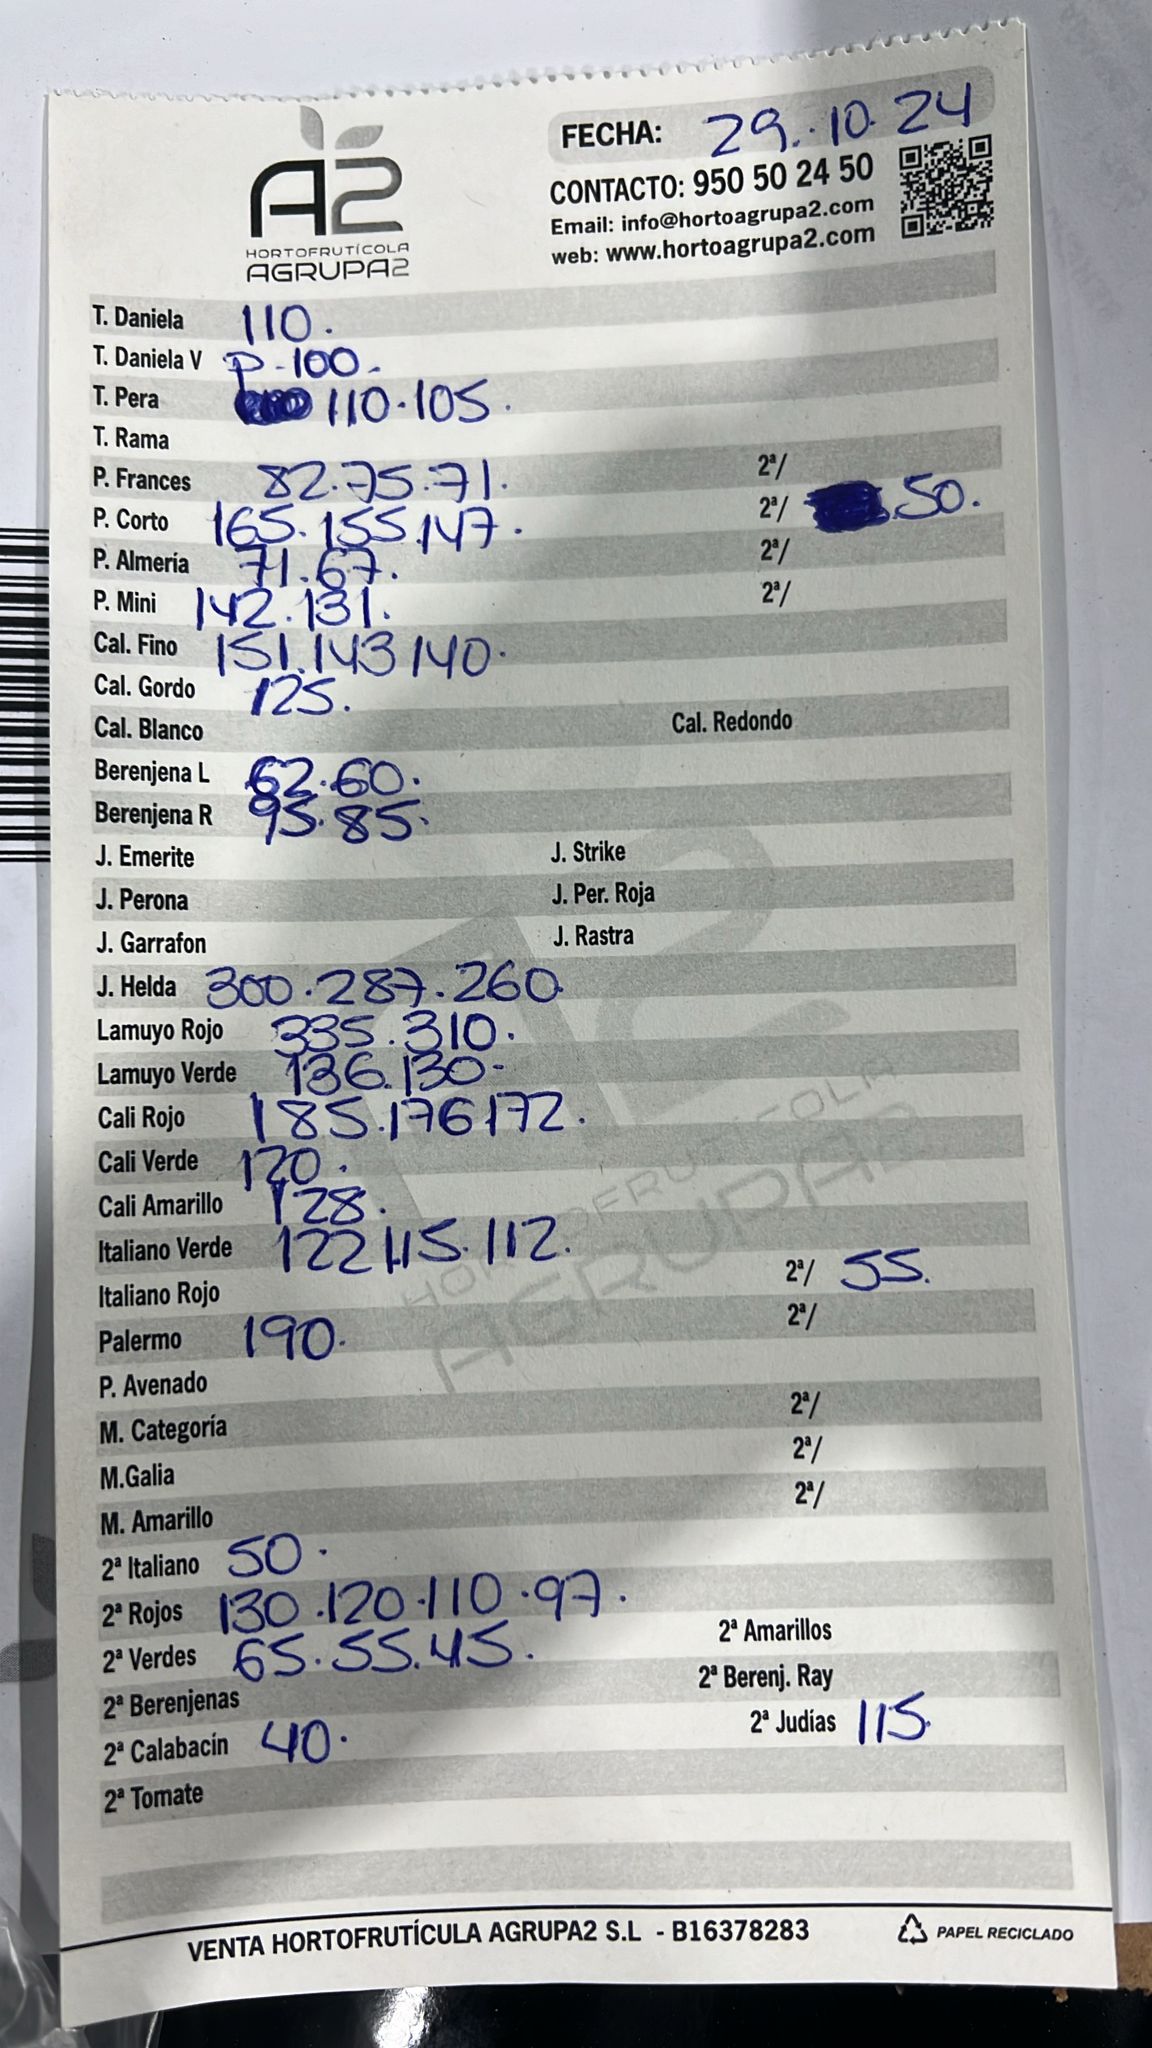 FECHA: 29.10.24
A2
HORTOFRUTÍCOLA
AGRUPA2
CONTACTO: 950 50 24 50
Email: info@hortoagrupa2.com
web: www.hortoagrupa2.com
T. Daniela 110.
T. Daniela V P-100.
T. Pera 110.105.
T. Rama
P. Frances 82.75.71. 2ª/
P. Corto 165.155.147. 2ª/ .50.
P. Almería 71.67. 2ª/
P. Mini 142.131. 2ª/
Cal. Fino 151.143 140.
Cal. Gordo 125.
Cal. Blanco Cal. Redondo
Berenjena L 62.60.
Berenjena R 95.85.
J. Emerite J. Strike
J. Perona J. Per. Roja
J. Garrafon J. Rastra
J. Helda 300.287.260
Lamuyo Rojo 335.310.
Lamuyo Verde 136.130-
Cali Rojo 185.176 172.
Cali Verde 120.
Cali Amarillo 128.
Italiano Verde 122 115.112.
Italiano Rojo 2ª/ 55.
Palermo 190. 2ª/
P. Avenado
M. Categoría 2ª/
M.Galia 2ª/
M. Amarillo 2ª/
2ª Italiano 50.
2ª Rojos 130.120.110.97.
2ª Verdes 65.55.45. 2ª Amarillos
2ª Berenjenas 2ª Berenj. Ray
2ª Calabacín 40. 2ª Judías 115.
2ª Tomate
HORTOFRUTÍCOLA
AGRUPA2
VENTA HORTOFRUTÍCULA AGRUPA2 S.L - B16378283
PAPEL RECICLADO